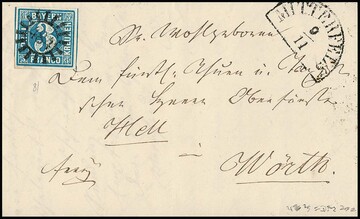 BAYERN
3
KREUZER
MITTERFELS
9
11
Sr. Wohlgeboren
Dem Fürstl. Thurn u. Taxi
schen Herrn Oberförster
Hell
frey
Wörth.